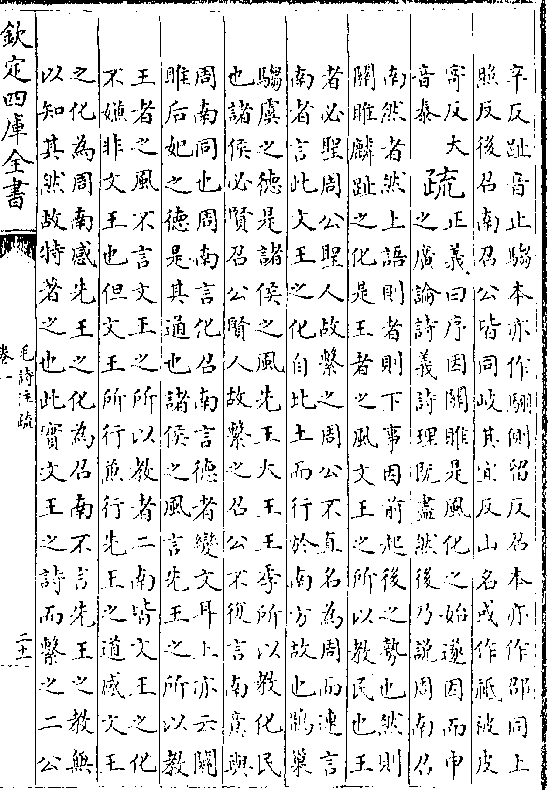 辛反趾音止騶本亦作騶側留反召本亦作邵同上
照反後召南召公皆同岐其宜反山名或作祗被皮
寄反大
音泰
疏
正義曰序因關雎是風化之始遂因而申
之廣論詩義詩理既盡然後乃說周南召
南然者然上語則者則下事因前起後之勢也然則
關雎麟趾之化是王者之風文王之所以教民也王
者必聖周公聖人故繫之周公不直名為周而連言
南者言此文王之化自北土而行於南方故也鵲巢
騶虞之德是諸侯之風先王大王王季所以教化民
也諸侯必賢召公賢人故繫之召公不復言南意與
周南同也周南言化召南言德者變文耳上亦云關
雎后妃之德是其通也諸侯之風言先王之所以教
王者之風不言文王之所以教者二南皆文王之化
不嫌非文王也但文王所行兼行先王之道感文王
之化為周南感先王之化為召南不言先王之教無
以知其然故特著之也此實文王之詩而繫之二公
欽定四庫全書
毛詩注疏
卷一
二十一